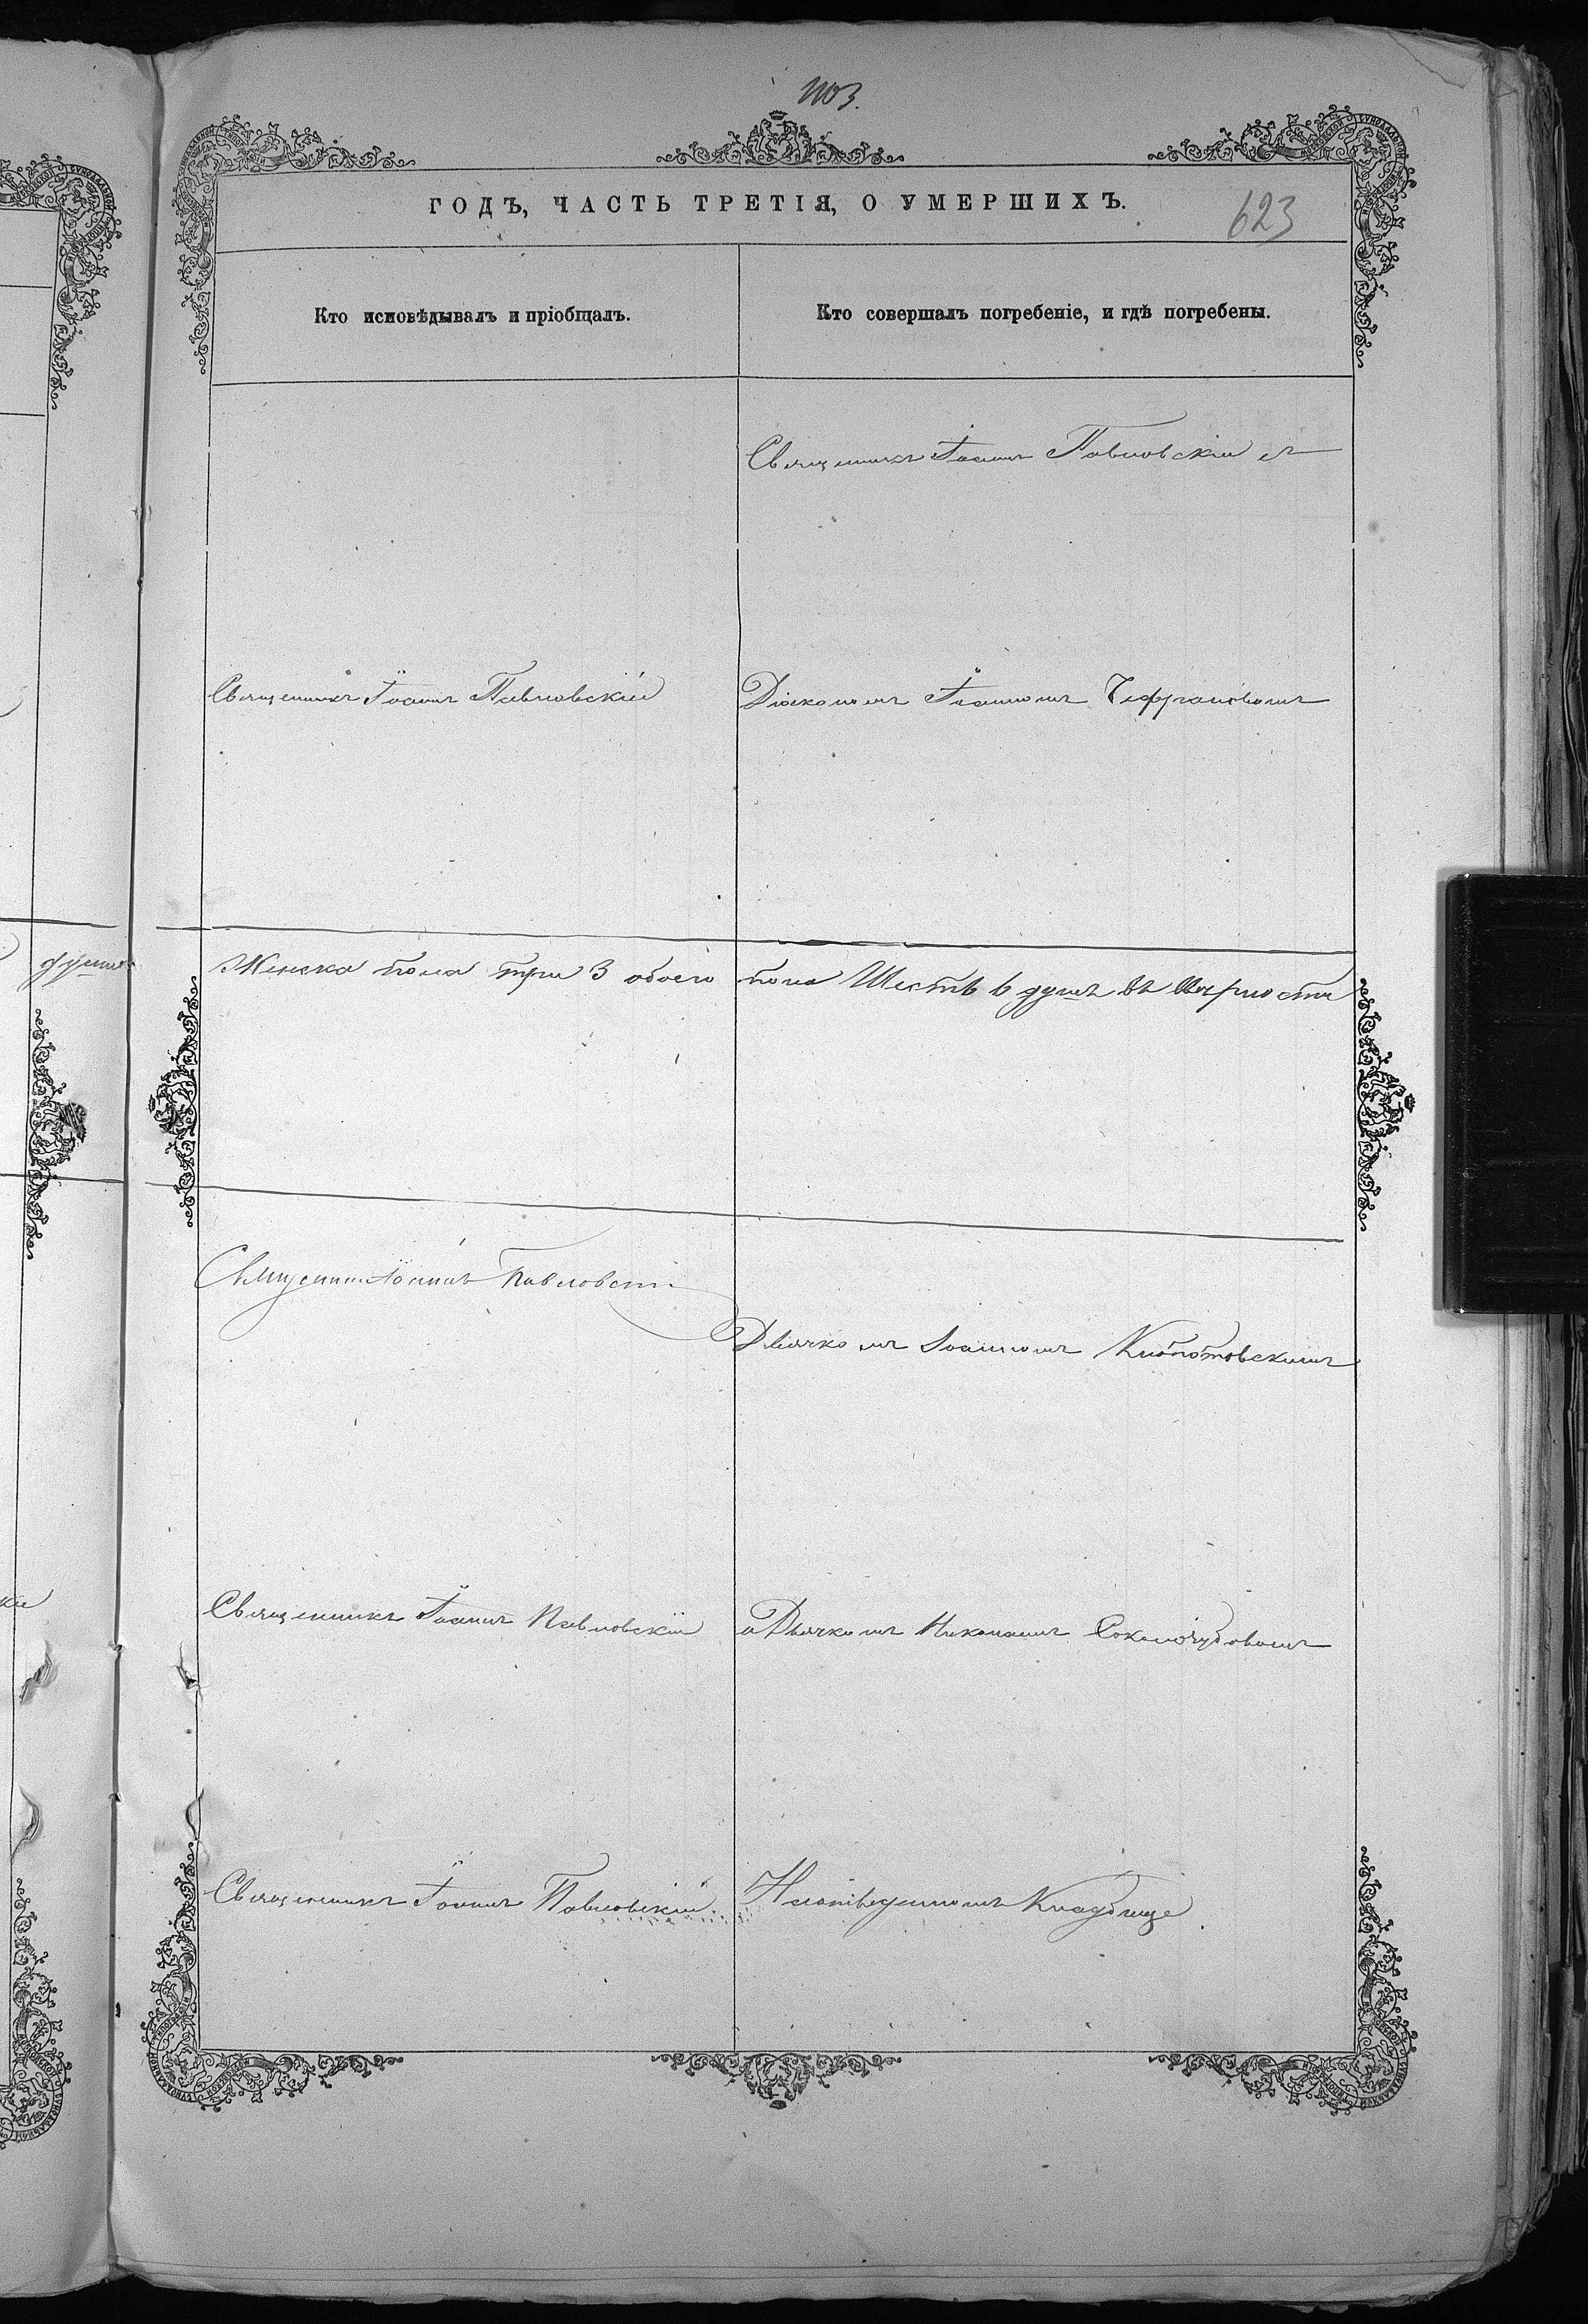 1103.
ГОДЪ, ЧАСТЬ ТРЕТІЯ, О УМЕРШИХЪ.
623
Кто исповѣдывалъ и пріобщалъ.
Кто совершалъ погребеніе, и гдѣ погребены.
Священникъ Іоаннъ Павловскій съ
Священникъ Іоаннъ Павловскій
Діакономъ Іоанномъ Чефрановымъ
душъ
Женска пола три 3 обоего пола Шесть 6 душъ въ Мартѣ
Священникъ Іоаннъ Павловскій
Дьячкомъ Іоанномъ Клопотовскимъ
Священникъ Іоаннъ Павловскій
и Дьячкомъ Николаемъ
Священникъ Іоаннъ Павловскій
На отведенномъ Кладбище